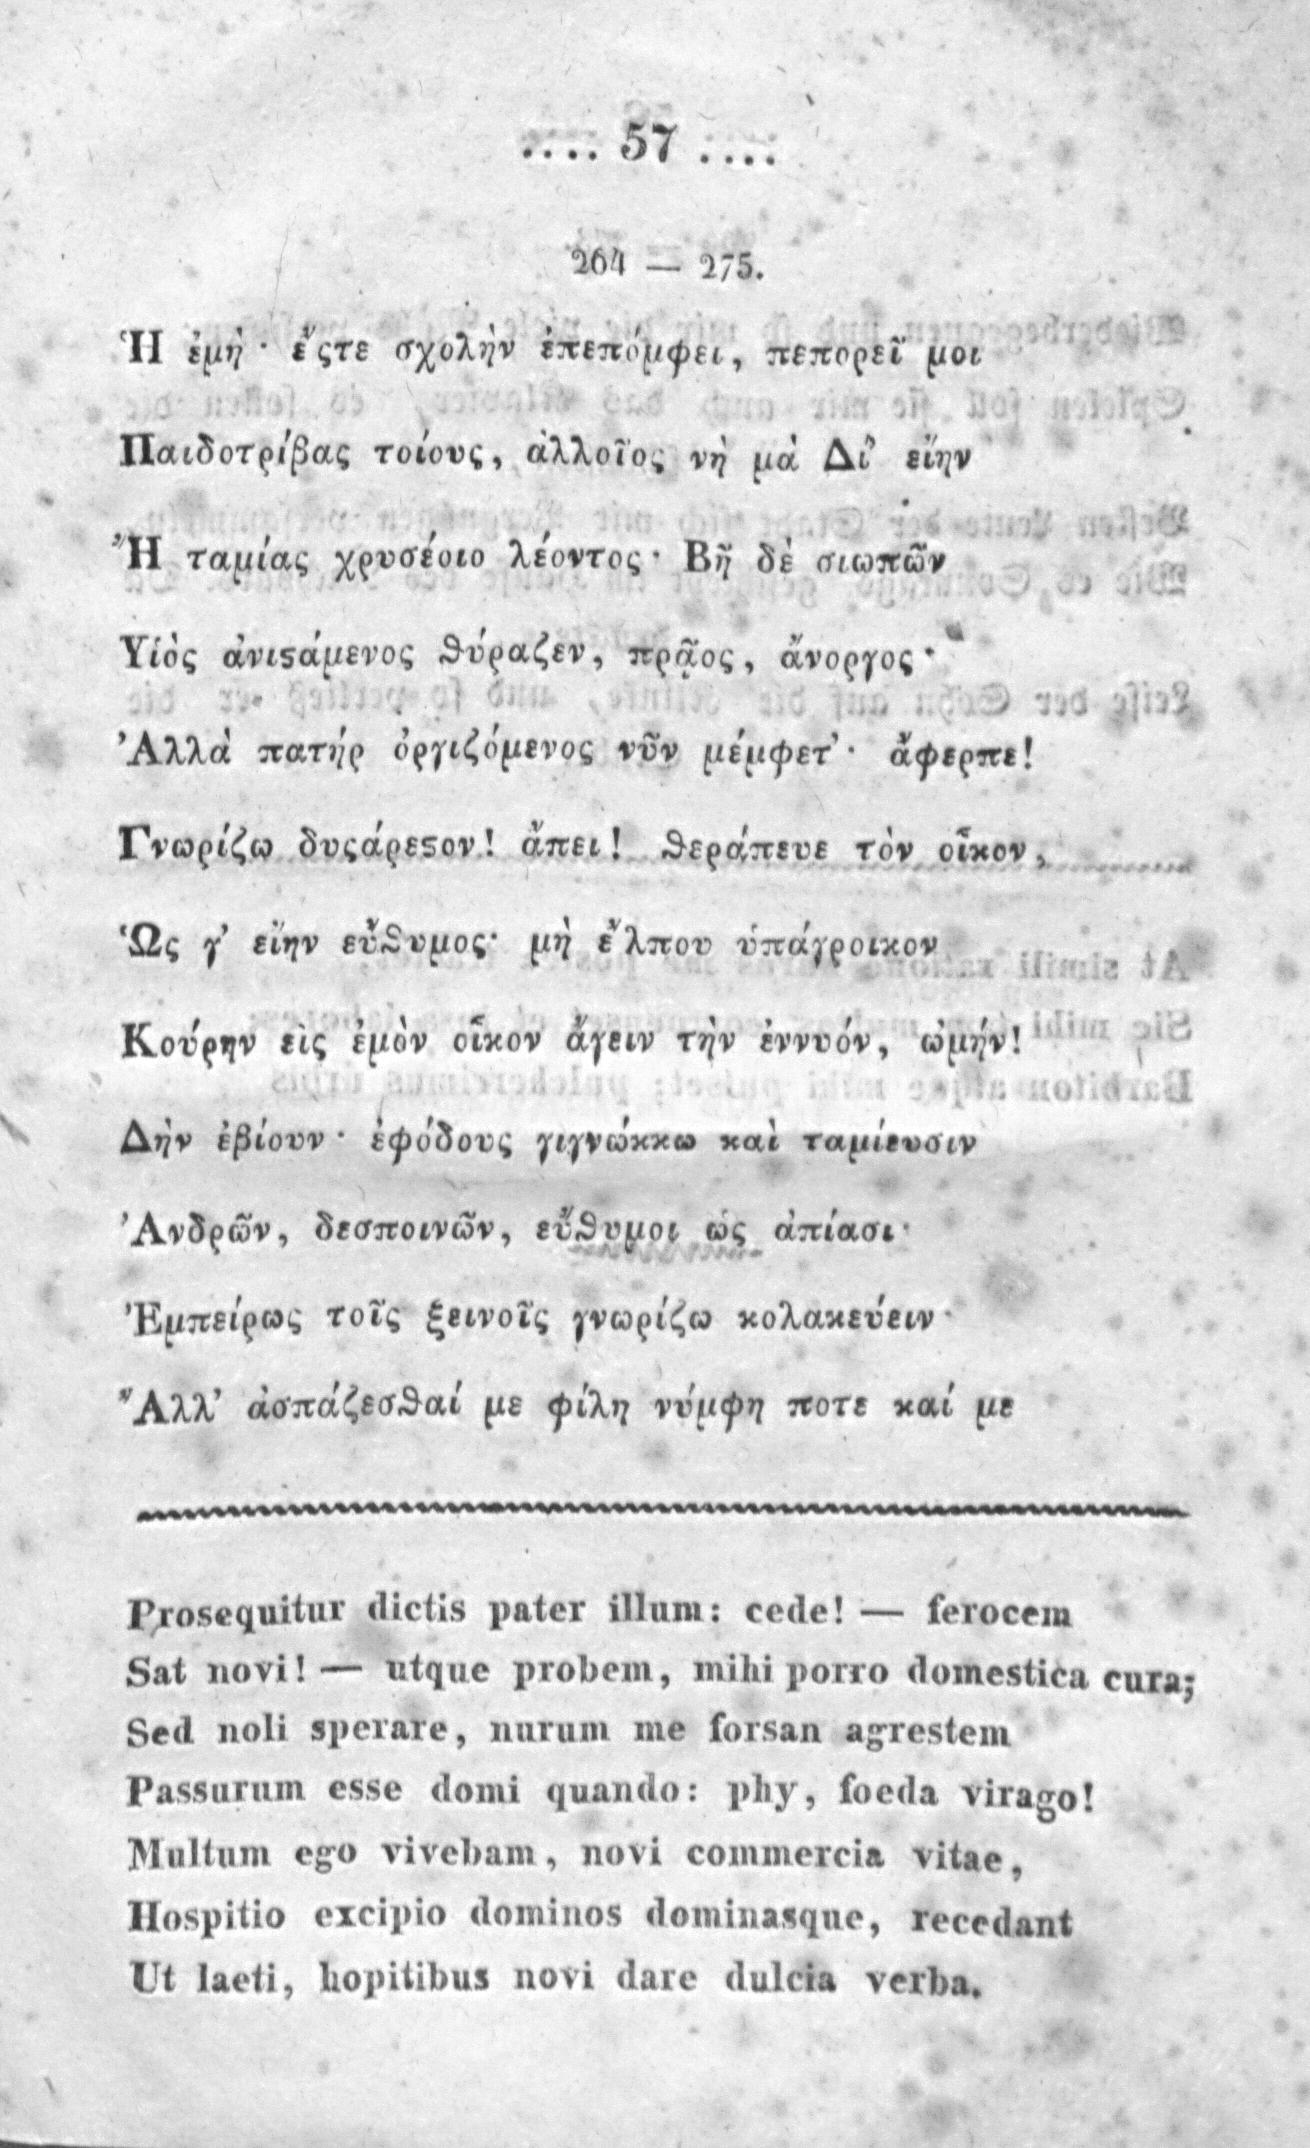 .... 57 ....
264 — 275.
Ἡ ἐμή· ἔςτε σχολὴν ἐπεπόμφει, πεπορεῖ μοι
Παιδοτρίβας τοίους, ἀλλοῖος νὴ μὰ Δί' εἴην
Ἢ ταμίας χρυσέοιο λέοντος· Βῆ δὲ σιωπῶν
Υἱὸς ἀνιϛάμενος ϑύραζεν, πρᾷος, ἄνοργος·
Ἀλλὰ πατήρ ὀργιζόμενος νῦν μέμφετ'· ἄφερπε!
Γνωρίζω δυςάρεϛον! ἄπει! ϑεράπευε τὸν οἶκον,
Ὡς γ' εἴην εὔϑυμος· μὴ ἔλπου ὑπάγροικον
Κούρην εἰς ἐμὸν οἶκον ἄγειν τὴν ἐννυόν, ὠμήν!
Δὴν ἐβίουν· ἐφόδους γιγνώκκω καὶ ταμίευσιν
Ἀνδρῶν, δεσποινῶν, εὔϑυμοι ὡς ἀπίασι·
Ἐμπείρως τοῖς ξεινοῖς γνωρίζω κολακεύειν·
Ἄλλ' ἀσπάζεσϑαί με φίλη νύμφη ποτε καί με
Prosequitur dictis pater illum: cede! — ferocem
Sat novi! — utque probem, mihi porro domestica cura;
Sed noli sperare, nurum me forsan agrestem
Passurum esse domi quando: phy, foeda virago!
Multum ego vivebam, novi commercia vitae,
Hospitio excipio dominos dominasque, recedant
Ut laeti, hopitibus novi dare dulcia verba.